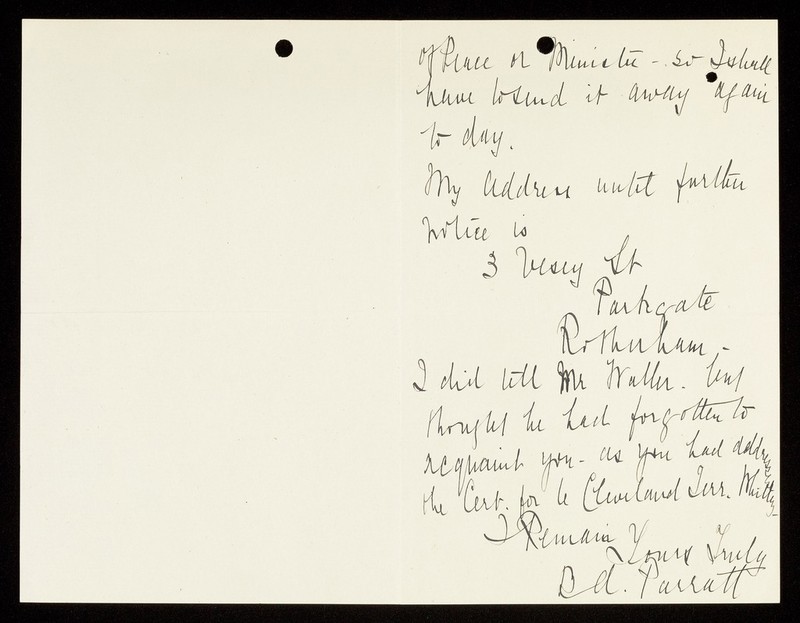 of Peace or Minister - so I shall
have to send it away again
to day.
My Address until further
notice is
3 Vesey St
Parkgate
Rotherham -
I did tell Mr Waller. but
thought he had forgotten to
acquaint you - as you had address
the Cert. for to Cleveland Terr. Whitby
I Remain
Yours Truly
B A. Parratt